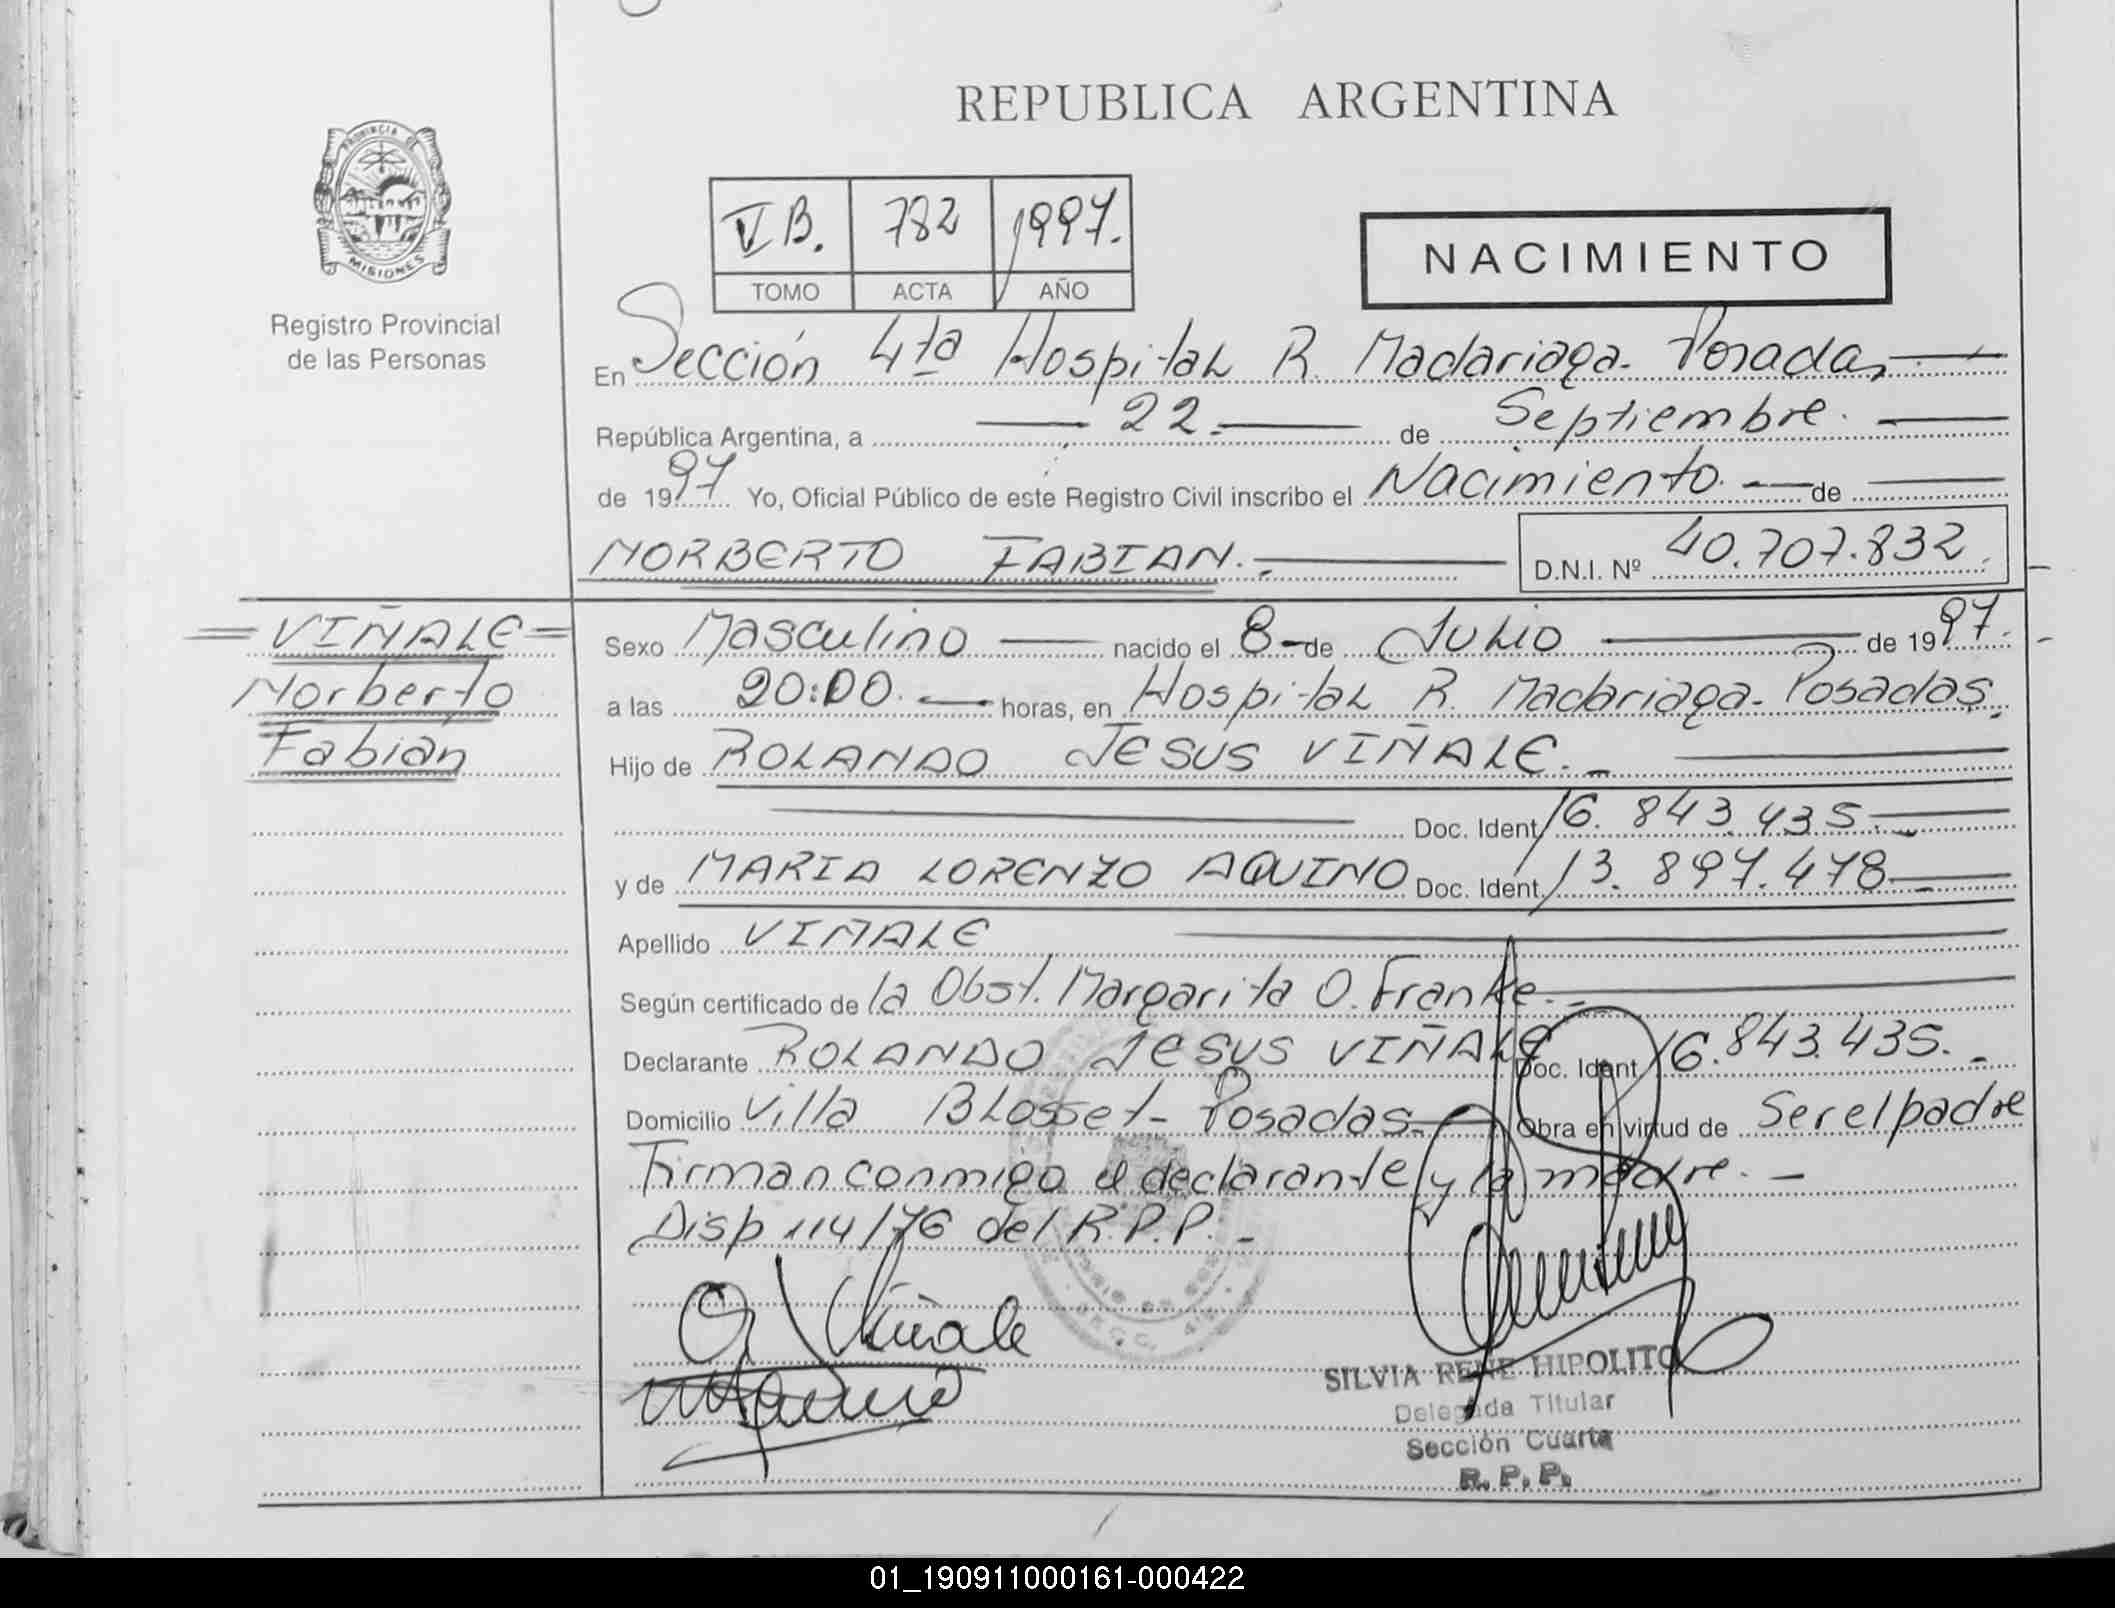 REPUBLICA ARGENTINA
PROVINCIA DE MISIONES
Registro Provincial
de las Personas
V B. 782 1997.
TOMO ACTA AÑO
NACIMIENTO
En Sección 4ta Hospital R. Madariaga. Posadas
República Argentina, a 22. de Septiembre.
de 1997 Yo, Oficial Público de este Registro Civil inscribo el Nacimiento. de
NORBERTO FABIAN. D.N.I. Nº 40.707.832.
= VIÑALE =
Norberto
Fabián
Sexo Masculino nacido el 8 de Julio de 1997.
a las 20:00. horas, en Hospital R. Madariaga. Posadas.
Hijo de ROLANDO JESUS VIÑALE.
Doc. Ident. 16.843.435.
y de MARIA LORENZO AQUINO Doc. Ident. 13.897.478.
Apellido VIÑALE
Según certificado de la Obst. Margarita O. Franke.
Declarante ROLANDO JESUS VIÑALE Doc. Ident. 16.843.435.
Domicilio Villa Blosset - Posadas. Obra en virtud de Ser el padre
Firman conmigo el declarante y la madre.
Disp 114/76 del R.P.P.
Viñale
SILVIA RENE HIPOLITO
Delegada Titular
Sección Cuarta
R. P. P.
01_190911000161-000422